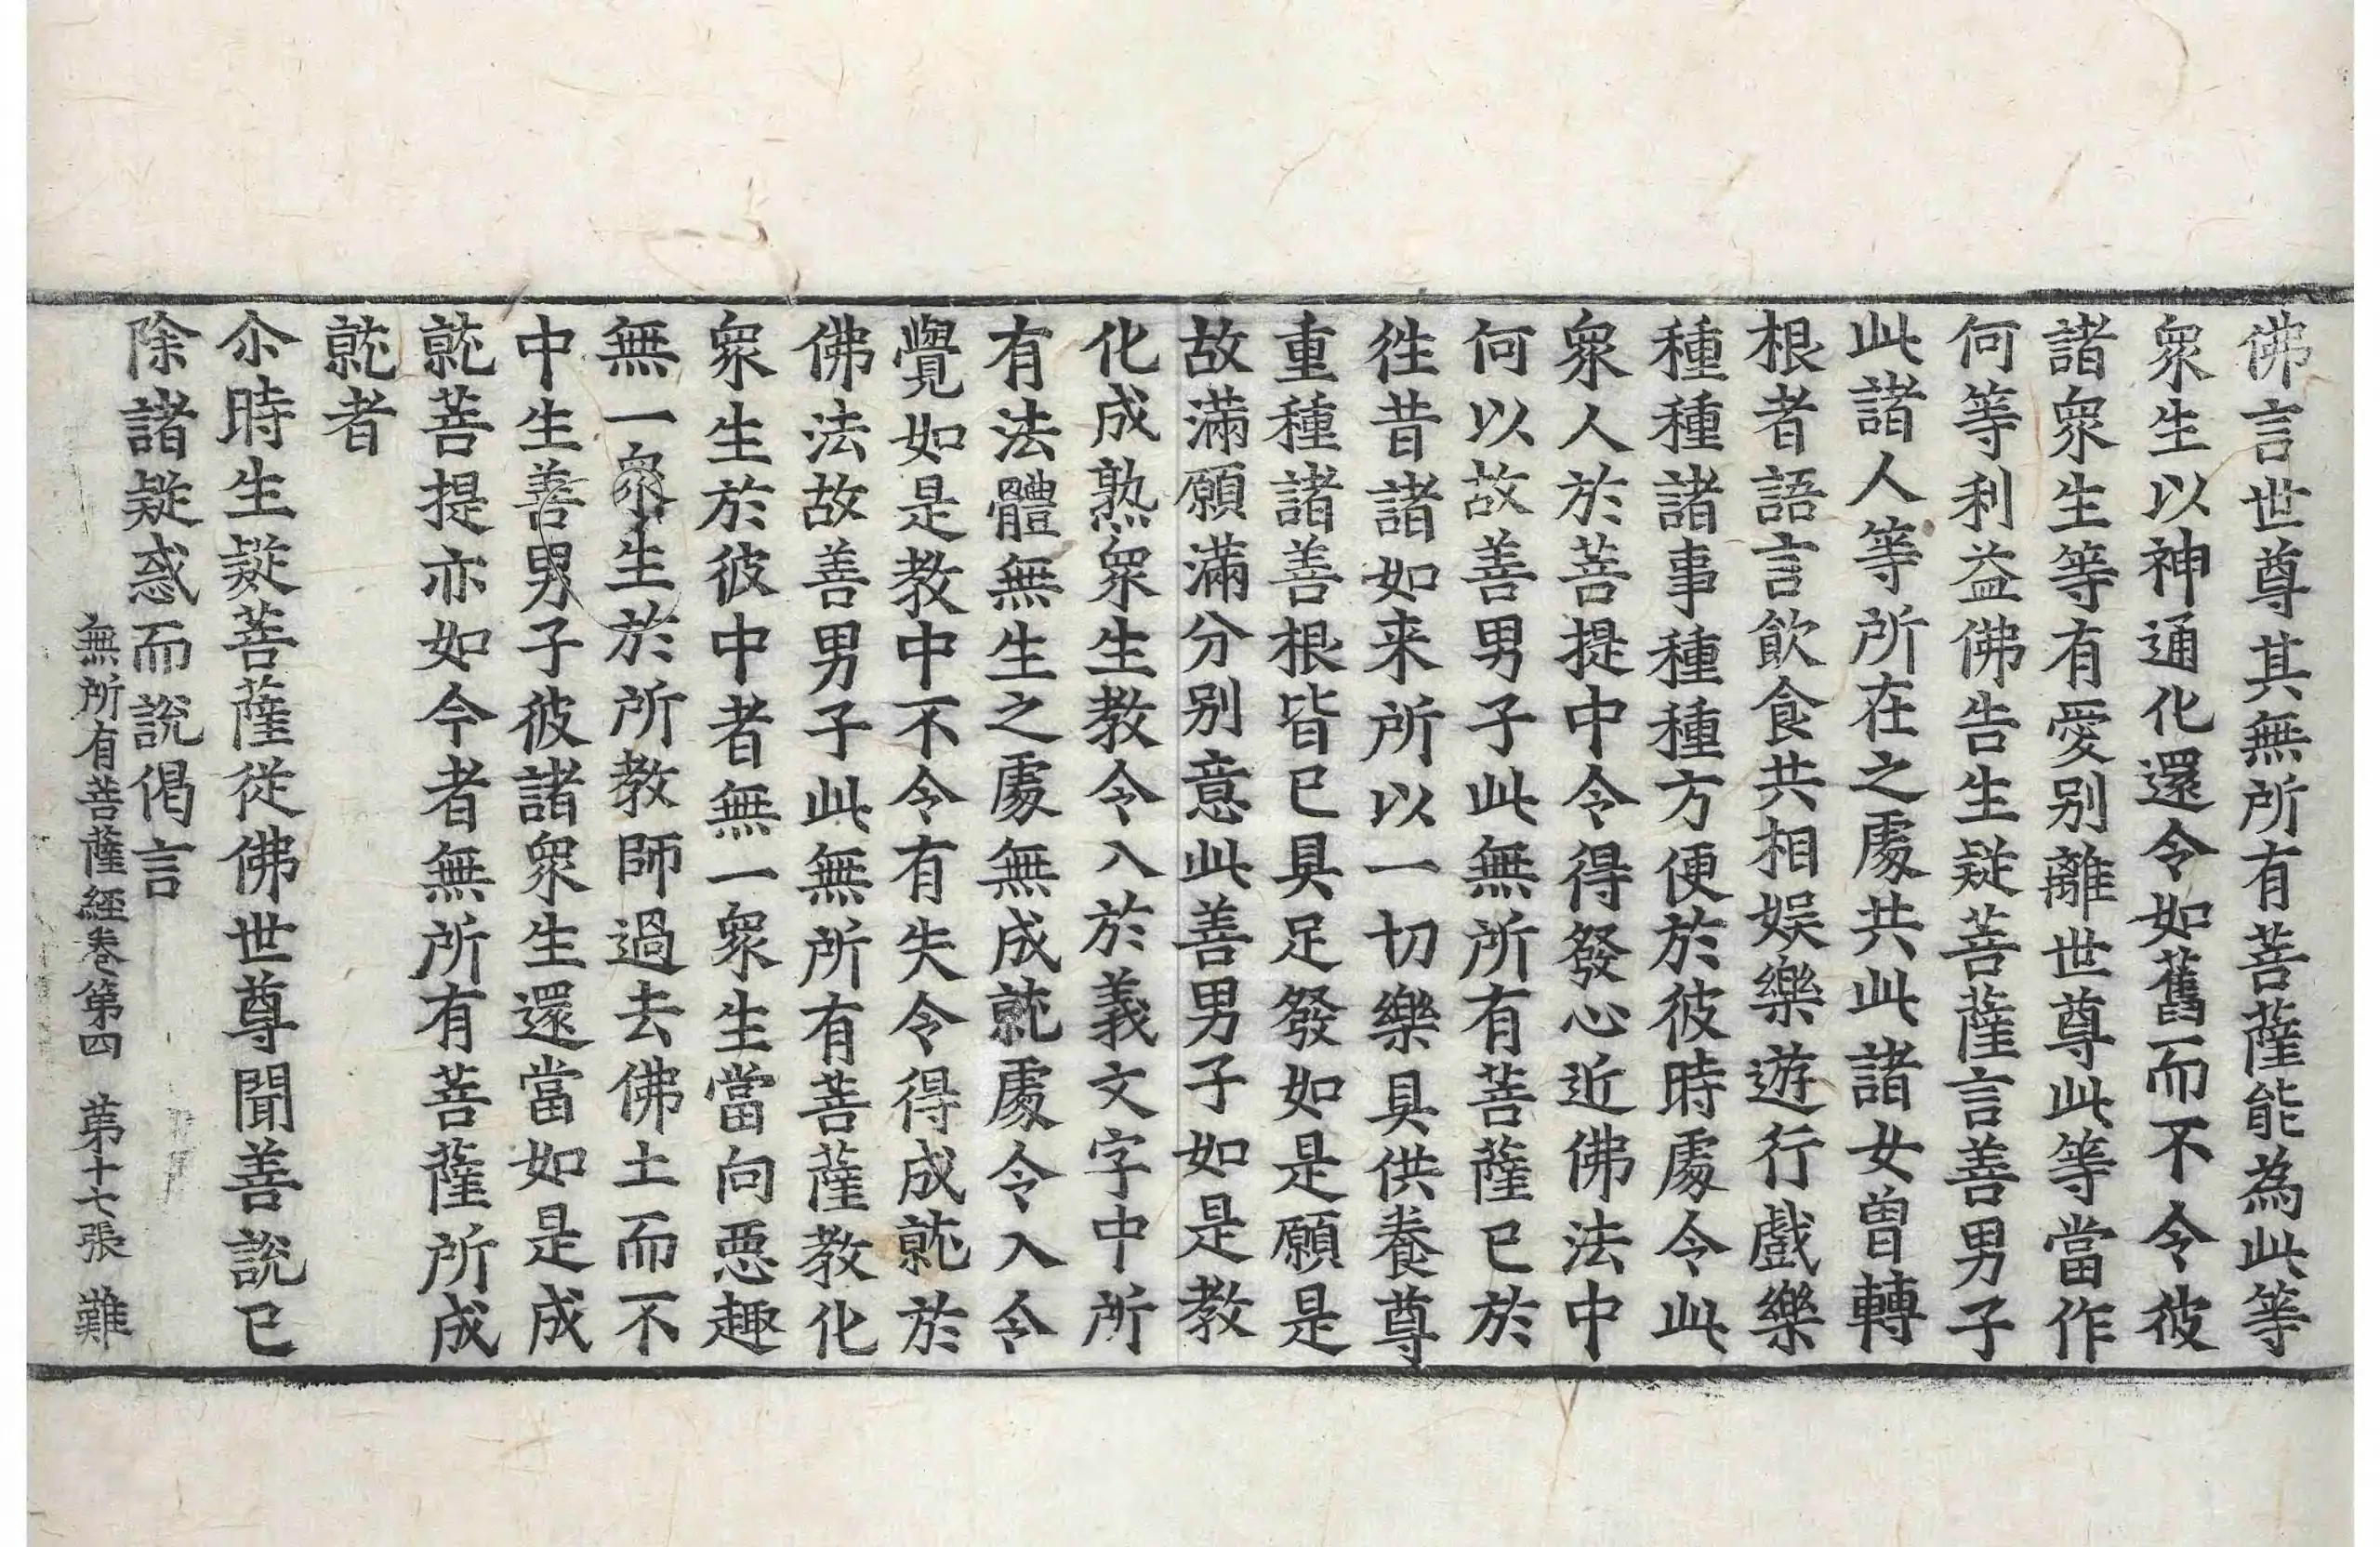 佛言世尊其無所有菩薩能為此等
衆生以神通化還令如舊而不令彼
諸衆生等有愛别離世尊此等當作
何等利益佛告生疑菩薩言善男子
此諸人等所在之處共此諸女曾轉
根者語言飲食共相娱樂遊行戲樂
種種諸事種種方便於彼時處令此
衆人於菩提中令得發心近佛法中
何以故善男子此無所有菩薩已於
往昔諸如来所以一切樂具供養尊
重種諸善根皆已具足發如是願是
故滿願滿分别意此善男子如是教
化成熟衆生教令入於義文字中所
有法體無生之處無成就處令入令
覺如是教中不令有失令得成就於
佛法故善男子此無所有菩薩教化
衆生於彼中者無一衆生當向惡趣
無一衆生於所教師過去佛土而不
中生善男子彼諸衆生還當如是成
就菩提亦如今者無所有菩薩所成
就者
尒時生疑菩薩從佛世尊聞善說已
除諸疑惑而說偈言
無所有菩薩經卷第四 第十七張 難